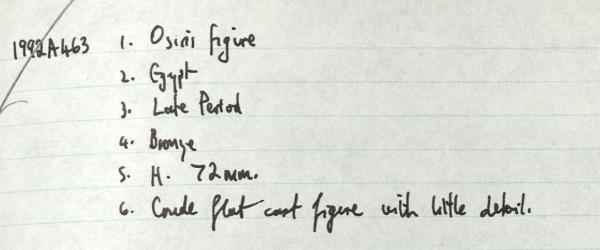 1992A463 1. Osiris figure
2. Egypt
3. Late Period
4. Bronze
5. H. 72mm.
6. Crude flat cast figure with little detail.